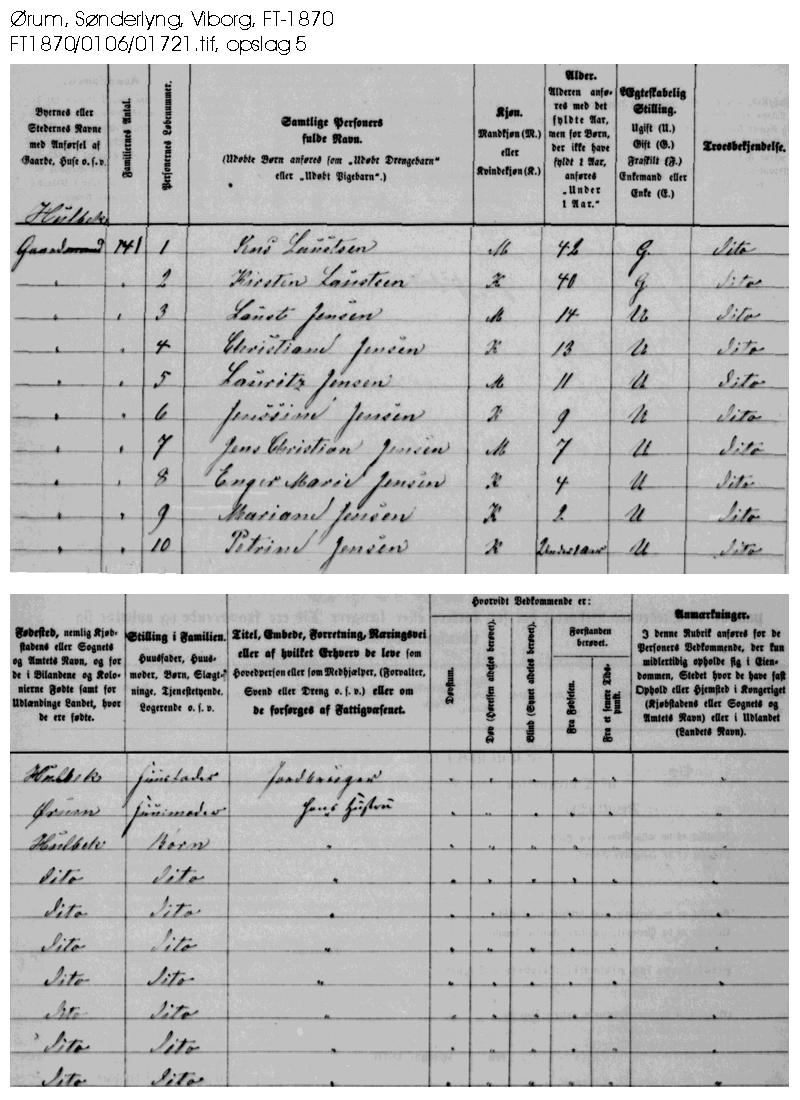 Ørum, Sønderlyng, Viborg, FT-1870
FT1870/0106/01721.tif, opslag 5
Byernes eller Stedernes Navne med Anførsel af Gaarde, Huse o. s. v.
Familiernes Antal.
Personernes Løbenummer.
Samtlige Personers fulde Navn.
(Udøbte Børn anføres som „Udøbt Drengebarn“ eller „Udøbt Pigebarn“.)
Kjøn.
Mandkjøn (M.) eller Kvindekjøn (K.)
Alder.
Alderen anføres med det fyldte Aar, men for Børn, der ikke have fyldt 1 Aar, anføres „Under 1 Aar.“
Ægteskabelig Stilling.
Ugift (U.) Gift (G.) Fraskilt (F.) Enkemand eller Enke (E.)
Troesbekjendelse.
Hulbek
141 1 Laustsen M 42 G dito
" " 2 Kirsten Laustsen K 40 G dito
" " 3 Laust Jensen M 14 U dito
" " 4 Christiane Jensen K 13 U dito
" " 5 Lauritz Jensen M 11 U dito
" " 6 Jenssine Jensen K 9 U dito
" " 7 Jens Christian Jensen M 7 U dito
" " 8 Enger Marie Jensen K 4 U dito
" " 9 Mariane Jensen K 2 U dito
" " 10 Petrine Jensen K Under 1 Aar U dito
Fødested, nemlig Kjøbstadens eller Sognets og Amtets Navn, og for de i Bilandene og Kolonierne Fødte samt for Udlændinge Landet, hvor de ere fødte.
Stilling i Familien.
Huusfader, Huusmoder, Børn, Slægtninge, Tjenestetyende, Logerende o. s. v.
Titel, Embede, Forretning, Næringsvei eller af hvilket Erhverv de leve som Hovedperson eller som Medhjælper, (Forvalter, Svend eller Dreng o. s. v.) eller om de forsørges af Fattigvæsenet.
Hvorvidt Vedkommende er:
Døvstum.
Døv (Hørelsen aldeles berøvet).
Blind (Synet aldeles berøvet).
Forstanden berøvet.
Fra Fødselen.
Fra et senere Tidspunkt.
Anmærkninger.
I denne Rubrik anføres for de Personers Vedkommende, der kun midlertidig opholde sig i Eiendommen, Stedet hvor de have fast Ophold eller Hjemsted i Kongeriget (Kjøbstadens eller Sognets og Amtets Navn) eller i Udlandet (Landets Navn).
Hulbek Huusfader Jordbruger " " " " " "
Ørum Huusmoder Hans Hustru " " " " " "
Hulbek Børn " " " " " " "
dito dito " " " " " " "
dito dito " " " " " " "
dito dito " " " " " " "
dito dito " " " " " " "
dito dito " " " " " " "
dito dito " " " " " " "
dito dito " " " " " " "